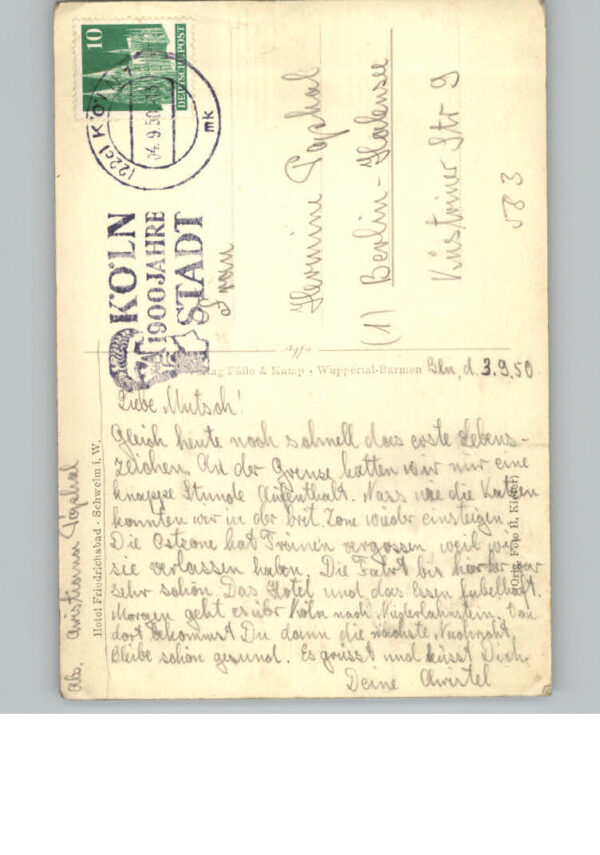 10
DEUTSCHE POST
(22c) KÖLN
04.9.50
mk
KÖLN
1900 JAHRE
STADT
Frau
Hermine
(1) Berlin-Halensee
Küstriner Str 9
583
Verlag Fölle & Kamp · Wuppertal-Barmen
Bln, d. 3.9.50
Liebe Mutsch!
Gleich heute noch schnell das erste Lebens-
zeichen. An der Grenze hatten wir nur eine
knappe Stunde Aufenthalt. Nass wie die Katzen
konnten wir in der brit. Zone wieder einsteigen.
Die Ostzone hat Tränen vergossen, weil wir
sie verlassen haben. Die Fahrt bis hierher war
sehr schön. Das Hotel und das Essen fabelhaft.
Morgen geht es über Köln nach Niederlahnstein. Von
dort bekommst Du dann die nächste Nachricht.
Bleibe schön gesund. Es grüsst und küsst Dich
Deine
Abs.
Hotel Friedrichsbad · Schwelm i. W.
(Orig. Foto H.